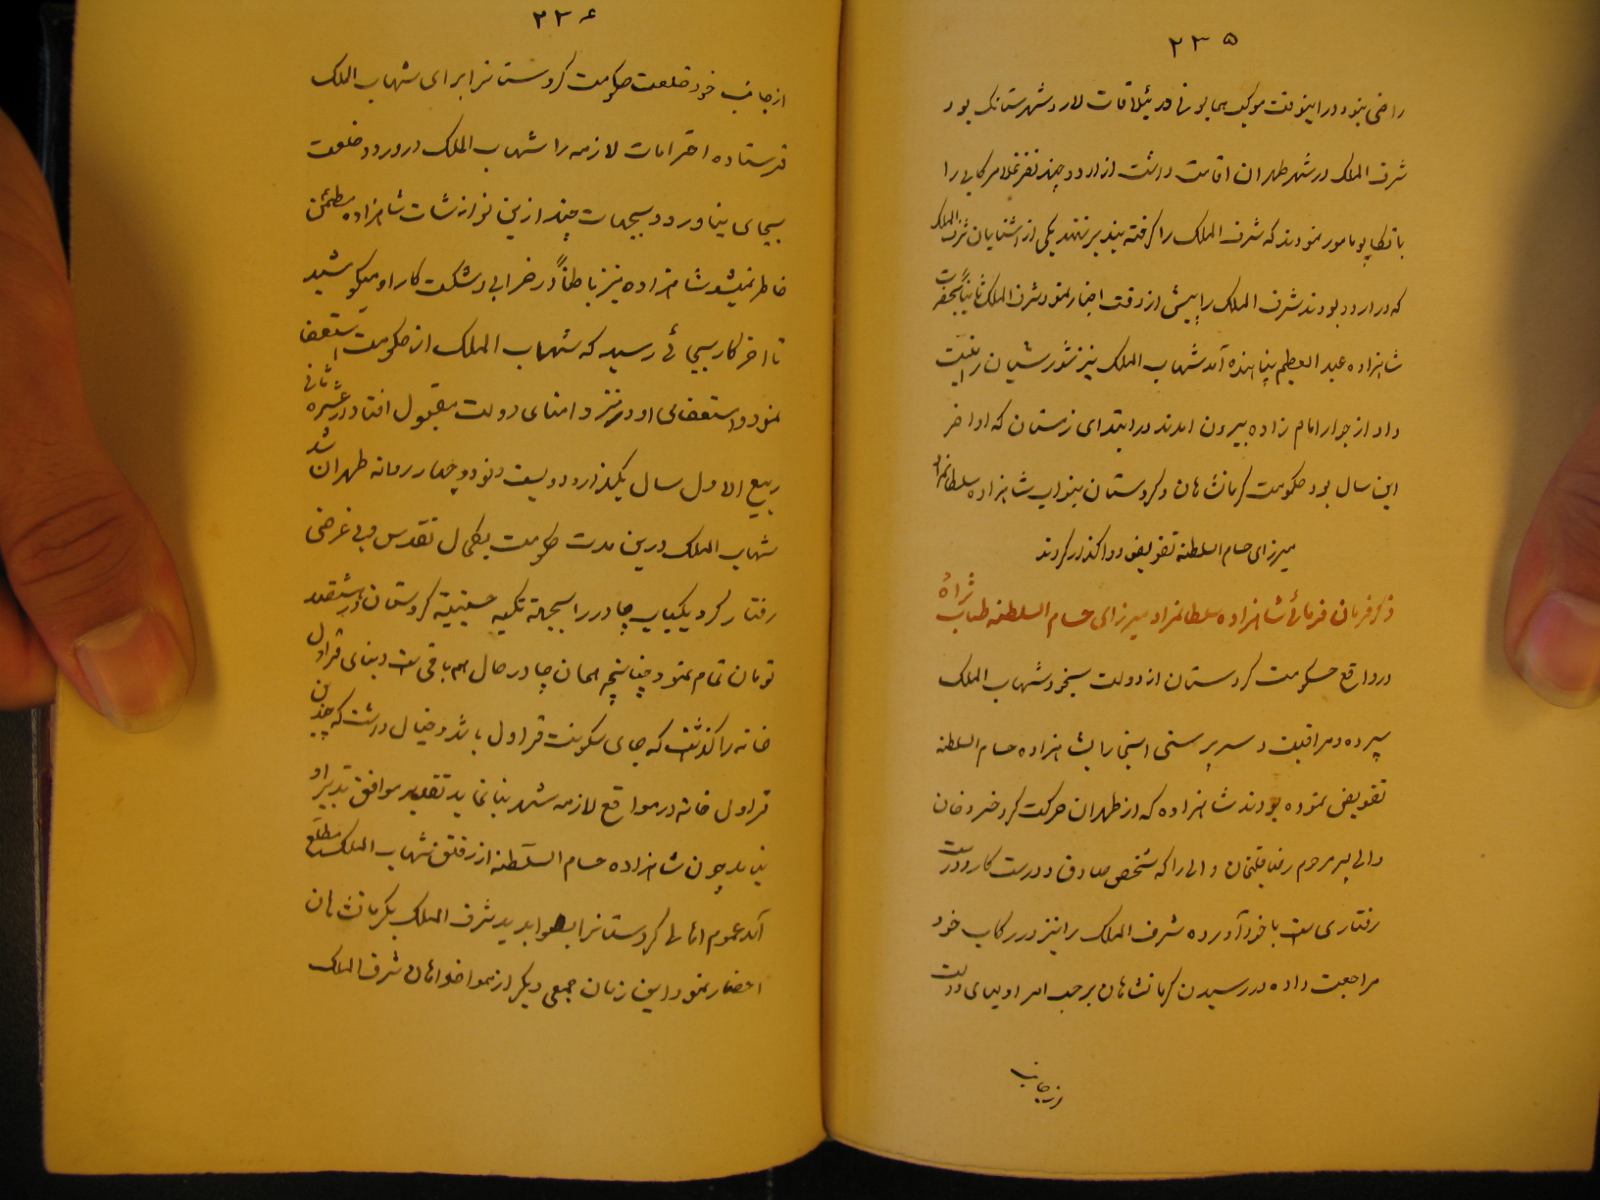 ۲۳۵
راضی بنود در اینوقت موکب همایونی در ییلاقات لار و شهرستانک بود
شرف الملک در شهر طهران اقامت داشت از اردو چند نفر غلام رکابی را
با مامور نمودند که شرف الملک را گرفته ببند ببرند یکی از اشنایان شرف الملک
که در اردو بودند شرف الملک را پیش از وقت اخبار نمود شرف الملک بحضرت
شاهزاده عبد العظیم پناهنده آمد شهاب الملک نیز شورشیان را
داد از جوار امام زاده بیرون امدند در ابتدای زمستان که اواخر
این سال بود حکومت کرمانشاهان و کردستان بنواب شاهزاده سلطانمراد
میرزای حسام السلطنه تفویض و واگذار کردند
ذکر فرمان فرمائی شاهزاده سلطانمراد میرزای حسام السلطنه طاب ثراه
در واقع حکومت کردستان از دولت بخود شهاب الملک
سپرده و مراقبت و سرپرستی اینجا را بشاهزاده حسام السلطنه
تفویض نموده بودند شاهزاده که از طهران حرکت کرد خسرو خان
والی پسر مرحوم رضا قلیخان والی را که شخص صادق و درست کار و درست
رفتاری است با خود آورده شرف الملک را نیز در رکاب خود
مراجعت داده در رسیدن کرمانشاهان بر حسب امر اولیای دولت
از جانب
۲۳۶
از جانب خود خلعت حکومت کردستانرا برای شهاب الملک
فرستاده احترامات لازمه را شهاب الملک در ورود خلعت
بجای بیاورد و بجهات چند ازین نوازشات شاهزاده مطمئن
خاطر نمیشد شاهزاده نیز باطناً در خرابی و شکست کار او میکوشید
تا اخر کار بجائی رسید که شهاب الملک از حکومت استعفا
نمود و استعفای او در نزد امنای دولت مقبول افتاد در عشره ثانی
ربیع الاول سال یکهزار و دویست و نود و چهار روانه طهران شد
شهاب الملک درین مدت حکومت بکمال تقدس و بی غرضی
رفتار کرد یکباب چادر را بجهة تکیه حسینیه کردستان در ششصد
تومان تمام نمود چنانچه همان چادر حال هم باقی است و بنای قراول
خانه را گذاشت که جای سکونت قراول باشد و خیال داشت که چندین
قراول خانه در مواقع لازمه شهر بنا نماید تقدیر موافق تدبیر او
نیامد چون شاهزاده حسام السلطنه از رفتن شهاب الملک مطلع
آمد عموم اهالی کردستانرا بصوابدید شرف الملک بکرمانشاهان
احضار نمود این زمان جمعی دیگر از هواخواهان شرف الملک